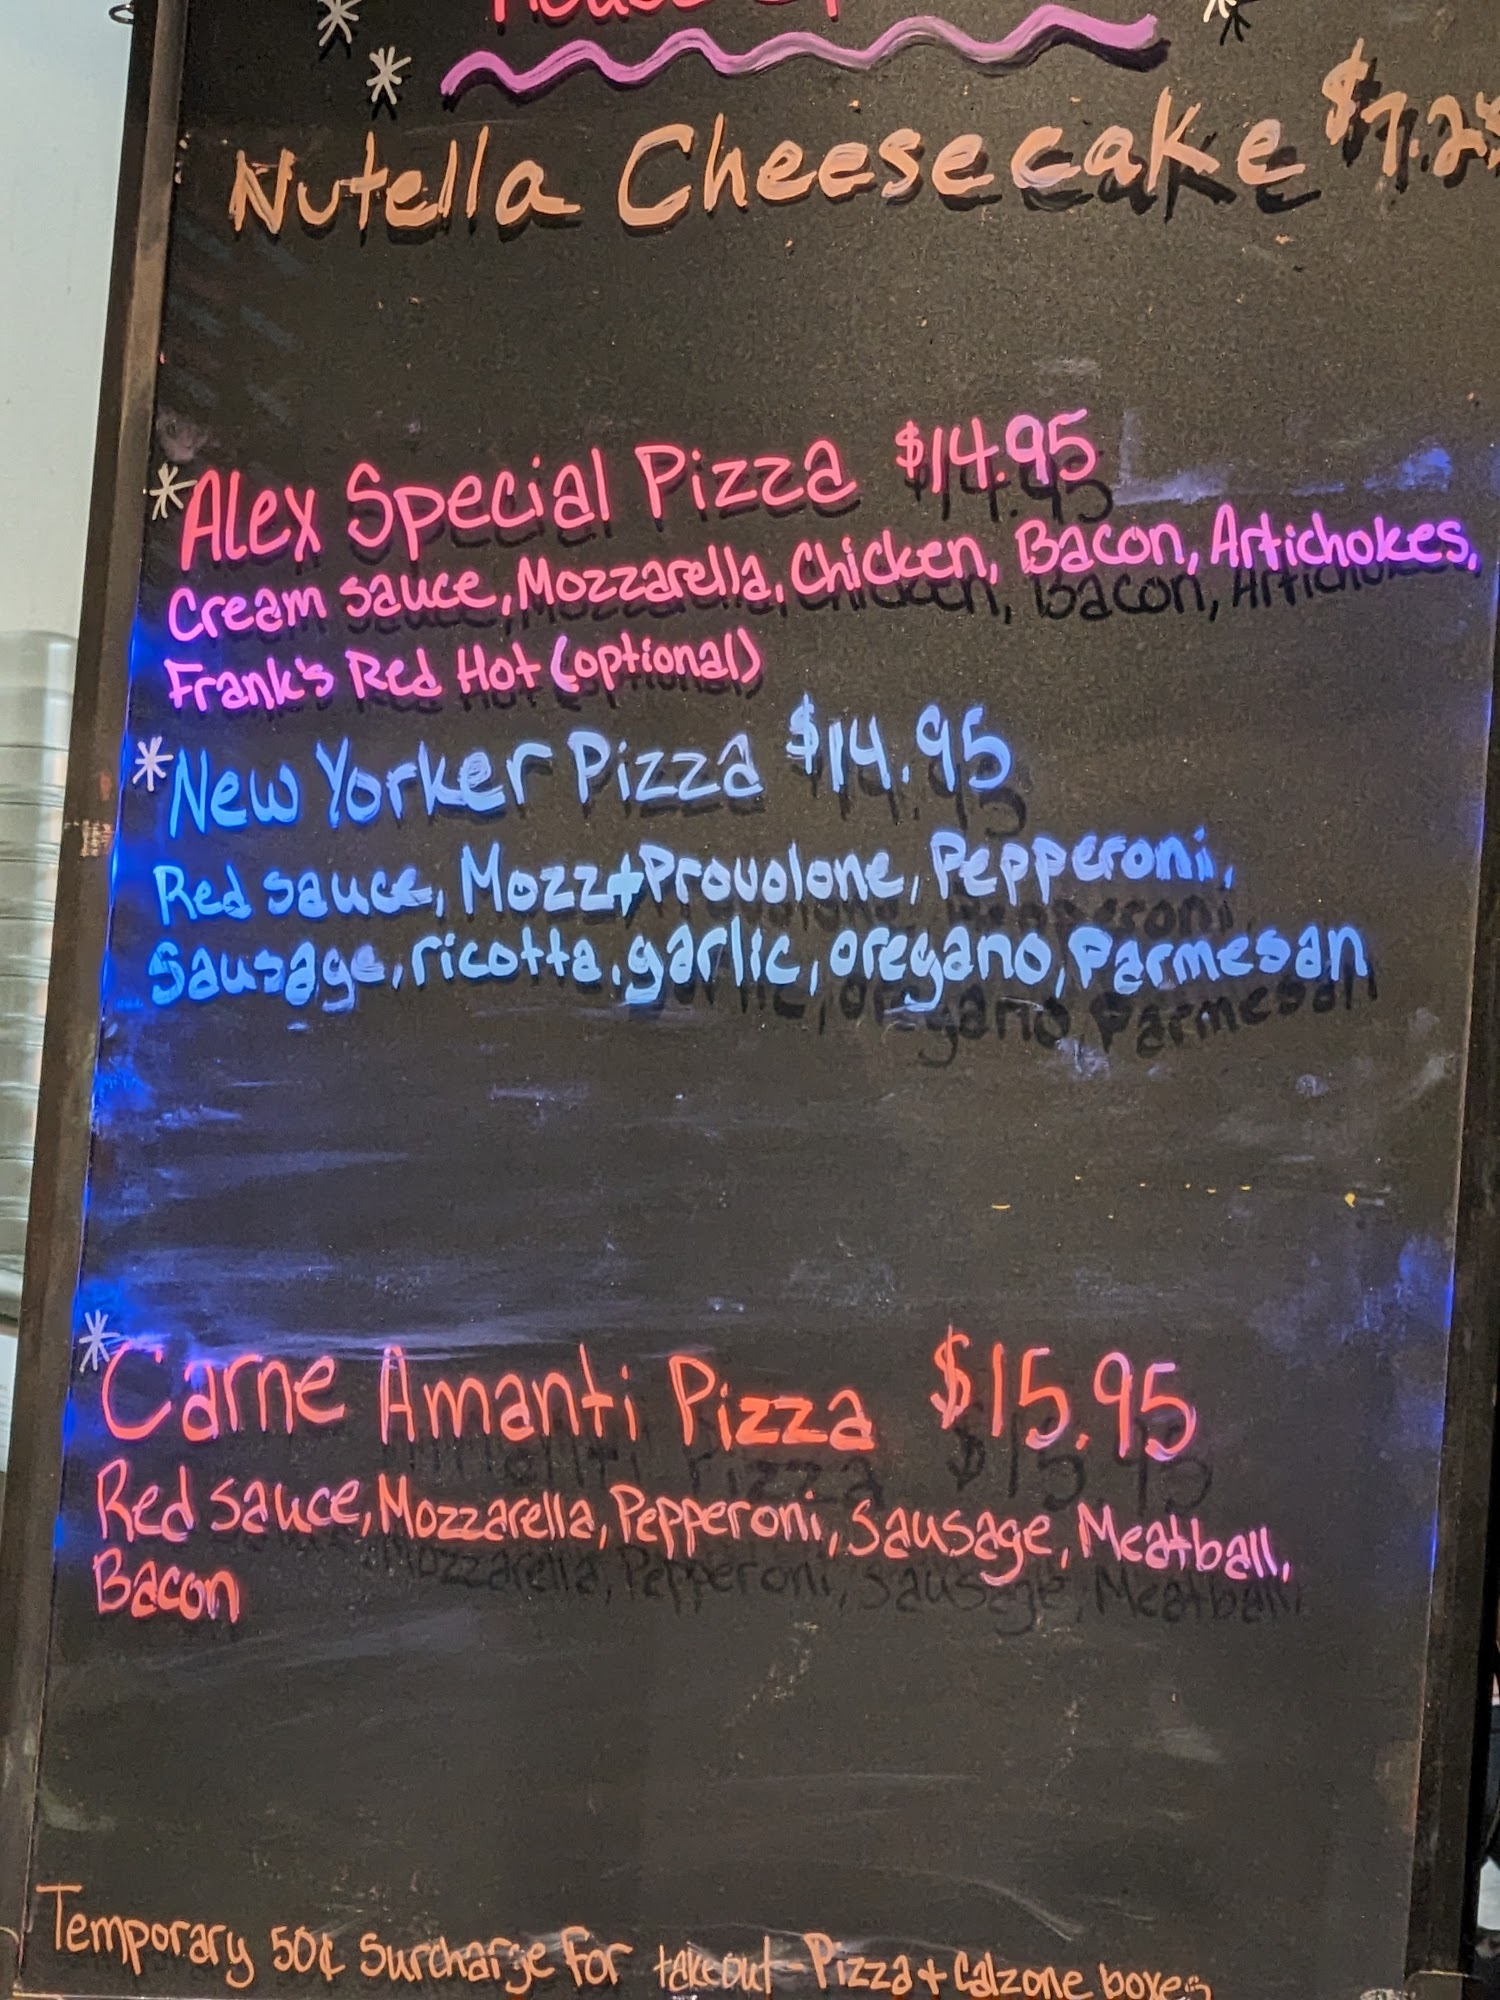 House
Nutella Cheesecake $7.25
*Alex Special Pizza $14.95
Cream sauce, Mozzarella, Chicken, Bacon, Artichokes,
Frank's Red Hot (optional)
*New Yorker Pizza $14.95
Red sauce, Mozz+Provolone, Pepperoni,
Sausage, ricotta, garlic, oregano, Parmesan
*Carne Amanti Pizza $15.95
Red sauce, Mozzarella, Pepperoni, Sausage, Meatball,
Bacon
Temporary 50¢ Surcharge for takeout - Pizza + Calzone boxes